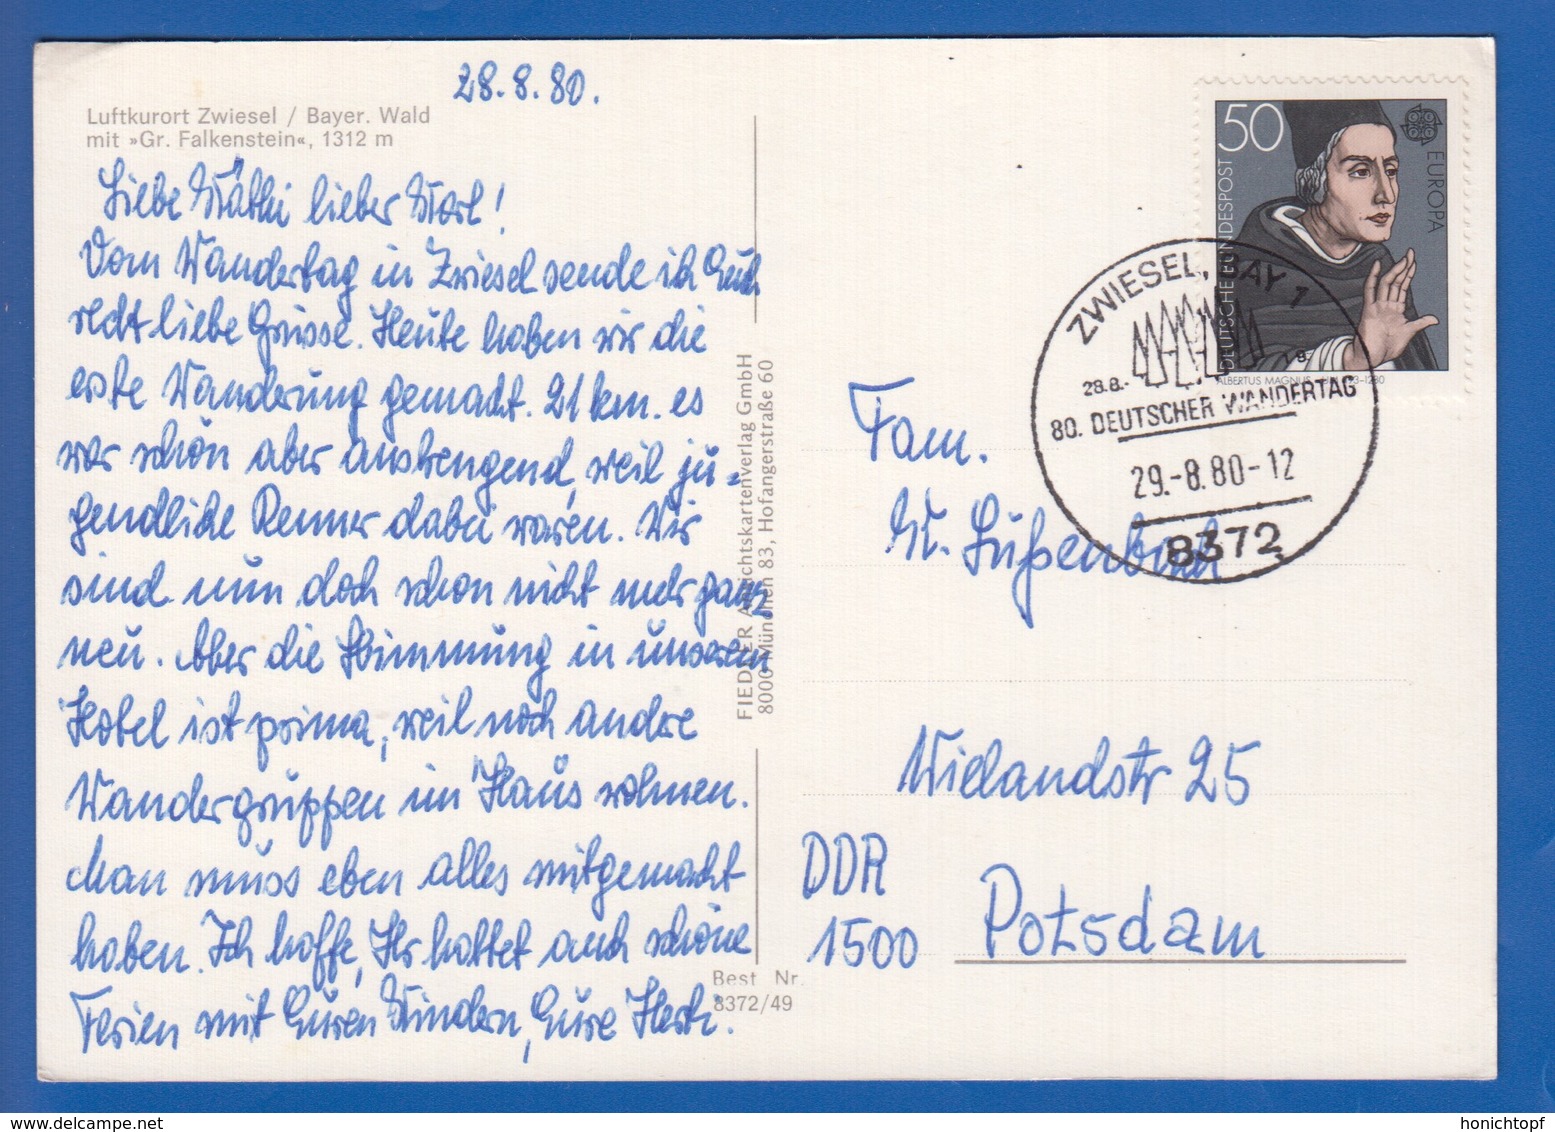 28.8.80.
Luftkurort Zwiesel / Bayer. Wald
mit »Gr. Falkenstein«, 1312 m
Liebe Käthi lieber Karl!
Vom Wandertag in Zwiesel sende ich Euch
recht liebe Grüsse. Heute haben wir die
erste Wanderung gemacht. 21 km. es
war schön aber anstrengend, weil ju=
gendliche Renner dabei waren. Wir
sind nun doch schon nicht mehr ganz
neu. Aber die Stimmung in unserem
Hotel ist prima, weil noch andre
Wandergruppen im Haus wohnen.
Man muss eben alles mitgemacht
haben. Ich hoffe, Ihr hattet auch schöne
Ferien mit Euren Kindern, Eure Herti.
FIEDLER Ansichtskartenverlag GmbH
8000 München 83, Hofangerstraße 60
Best Nr.
8372/49
50
DEUTSCHE BUNDESPOST
EUROPA
ALBERTUS MAGNUS 1193-1280
ZWIESEL, BAY 1
28.8.-
80. DEUTSCHER WANDERTAG
29.-8.80-12
8372
Fam.
K. Süßenbach
Wielandstr 25
DDR
1500 Potsdam
honichtopf